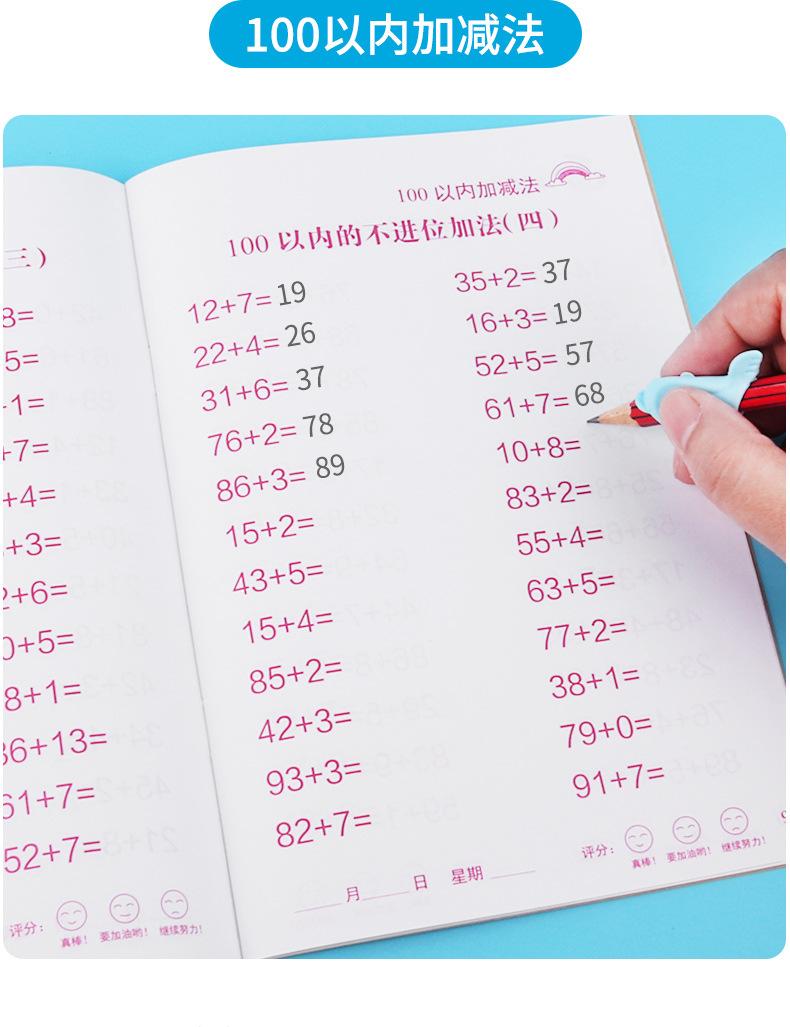 100以内加减法
三)
8=
5=
+1=
+7=
+4=
+3=
2+6=
0+5=
8+1=
36+13=
61+7=
52+7=
评分：
真棒！ 要加油哟！ 继续努力！
100 以内加减法
100 以内的不进位加法(四)
12+7=19 35+2=37
22+4=26 16+3=19
31+6=37 52+5=57
76+2=78 61+7=68
86+3=89 10+8=
15+2= 83+2=
43+5= 55+4=
15+4= 63+5=
85+2= 77+2=
42+3= 38+1=
93+3= 79+0=
82+7= 91+7=
月 日 星期
评分：
真棒！ 要加油哟！ 继续努力！